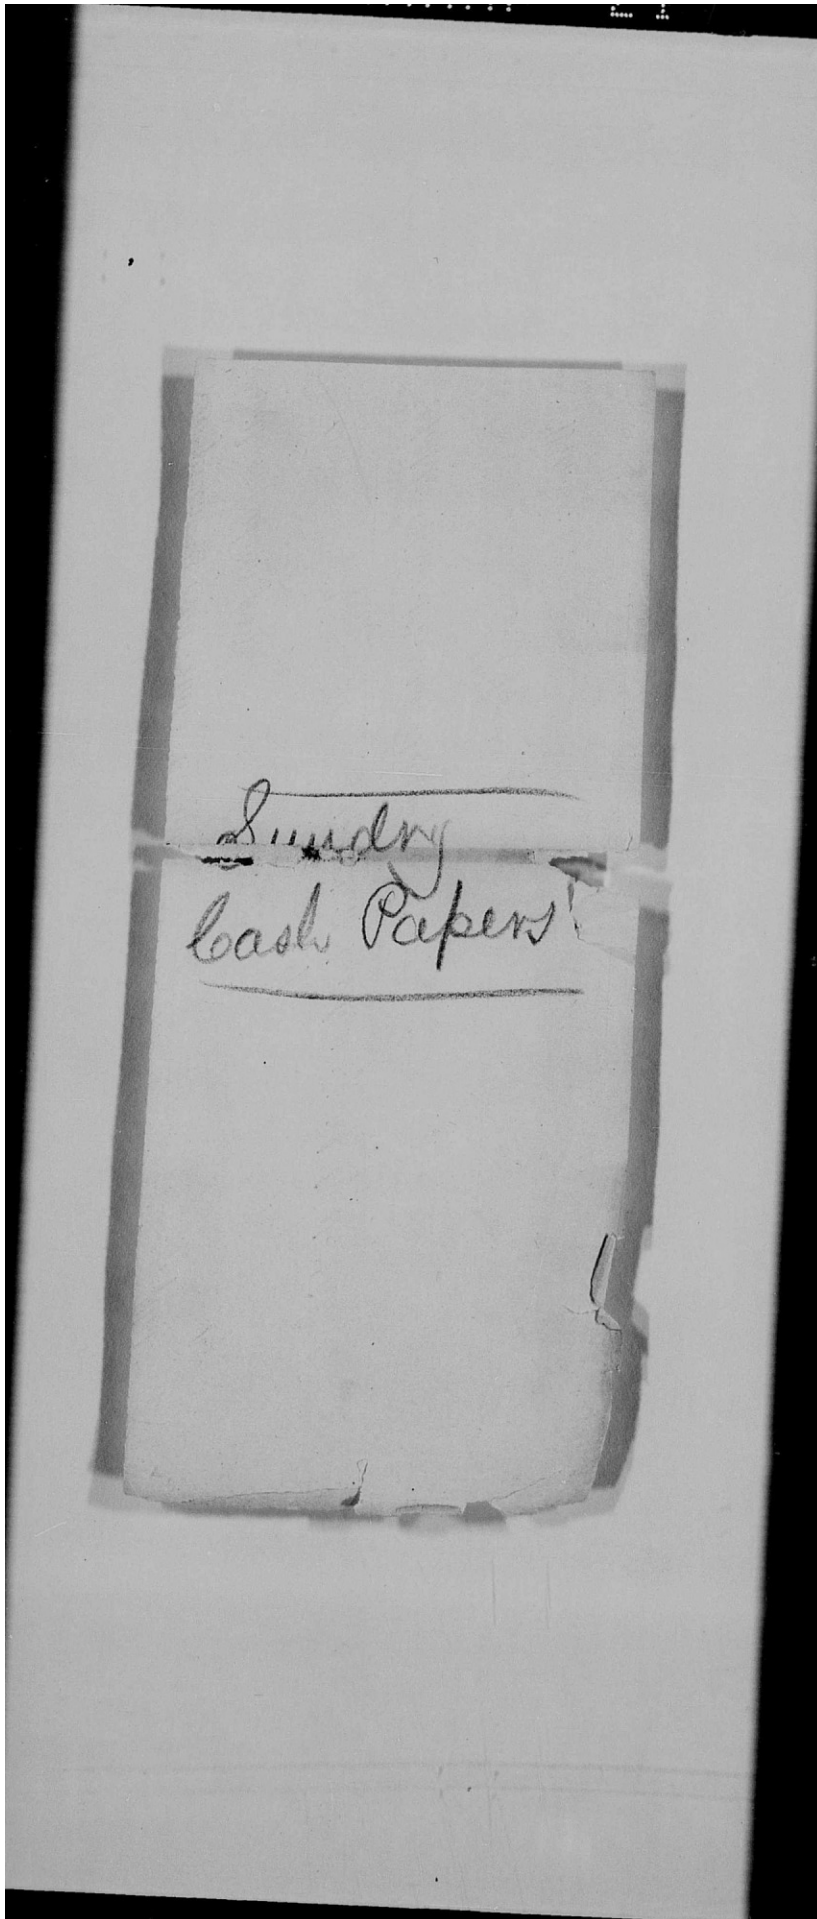 Sundry
Cash Papers